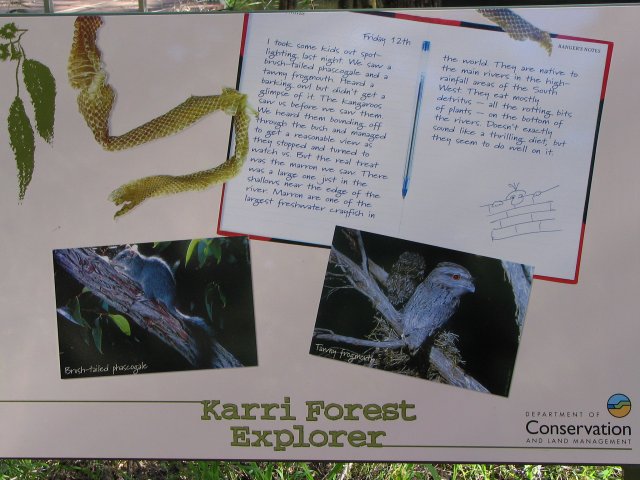 RANGER'S NOTES
Friday 12th
I took some kids out spot-
lighting last night. We saw a
brush-tailed phascogale and a
tawny frogmouth. Heard a
barking owl but didn't get a
glimpse of it. The kangaroos
saw us before we saw them.
We heard them bounding off
through the bush and managed
to get a reasonable view as
they stopped and turned to
watch us. But the real treat
was the marron we saw. There
was a large one just in the
shallows near the edge of the
river. Marron are one of the
largest freshwater crayfish in
the world. They are native to
the main rivers in the high-
rainfall areas of the South
West. They eat mostly
detritus — all the rotting bits
of plants — on the bottom of
the rivers. Doesn't exactly
sound like a thrilling diet, but
they seem to do well on it.
Brush-tailed phascogale
Tawny frogmouth
Karri Forest
Explorer
DEPARTMENT OF
Conservation
AND LAND MANAGEMENT